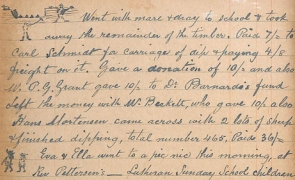 Went with mare & dray to school & took
away the remainder of the timber. Paid 7/2 to
Carl Schmidt for carriage of dip & paying 4/8
freight on it. Gave a donation of 10/- and also
W. P. G. Grant gave 10/- to Dr Barnardo's fund
Left the money with Mr Beckett, who gave 10/- also
Hans Mortensen came across with 2 lots of sheep
& finished dipping, total number 465. Paid 36/-
Eva & Ella went to a pic nic this morning, at
Rev Petersen's — Lutheran Sunday School children